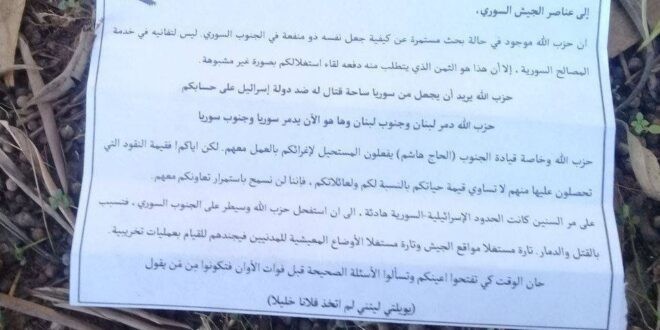 إلى عناصر الجيش السوري،
ان حزب الله موجود في حالة بحث مستمرة عن كيفية جعل نفسه ذو منفعة في الجنوب السوري. ليس لتفانيه في خدمة
المصالح السورية، إلا أن هذا هو الثمن الذي يتطلب منه دفعه لقاء استغلالكم بصورة غير مشبوهة.
حزب الله يريد أن يجعل من سوريا ساحة قتال له ضد دولة إسرائيل على حسابكم
حزب الله دمر لبنان وجنوب لبنان وها هو الأن يدمر سوريا وجنوب سوريا
حزب الله وخاصة قيادة الجنوب (الحاج هاشم) يفعلون المستحيل لإغرائكم بالعمل معهم. لكن اياكم! فقيمة النقود التي
تحصلون عليها منهم لا تساوي قيمة حياتكم بالنسبة لكم ولعائلاتكم، فإننا لن نسمح باستمرار تعاونكم معهم.
على مر السنين كانت الحدود الإسرائيلية-السورية هادئة، الى ان استفحل حزب الله وسيطر على الجنوب السوري، فتسبب
بالقتل والدمار. تارة مستغلا مواقع الجيش وتارة مستغلا الأوضاع المعيشية للمدنيين فيجندهم للقيام بعمليات تخريبية.
حان الوقت كي تفتحوا اعينكم وتسألوا الأسئلة الصحيحة قبل فوات الأوان فتكونوا مِن مَن يقول
(يويلتي ليتني لم اتخذ فلانا خليلا)